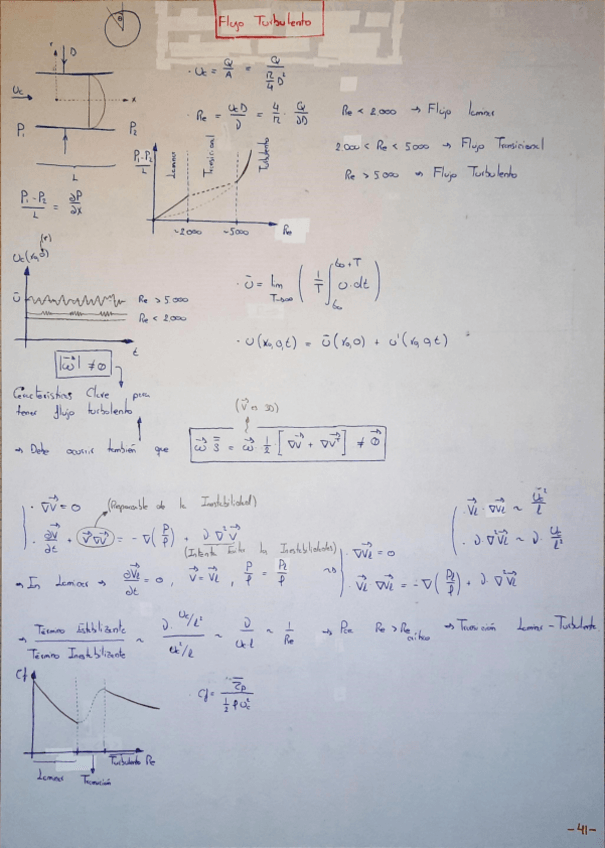 Flujo Turbulento
D
r
x
Uc
P₁
P₂
L
(P₁-P₂)/L = ∂P/∂x
· Uc = Q/A = Q/(π/4 D²)
· Re = UcD/ν = 4/π · Q/νD
Re < 2000 → Flujo Laminar
2000 < Re < 5000 → Flujo Transicional
Re > 5000 → Flujo Turbulento
P₁-P₂/L
Laminar
Transicional
Turbulento
~2000
~5000
Re
Ū
Re > 5000
Re < 2000
t
· Ū = lim T→∞ ( 1/T ∫ t₀ t₀+T U·dt )
· U(x₀,0,t) = Ū(x₀,0) + U'(x₀,0,t)
|ω⃗| ≠ 0
Características Clave para
tener flujo turbulento
(V⃗ es 3D)
→ Debe ocurrir también que
ω⃗ S̿ = ω⃗ · 1/2 · [∇V⃗ + ∇V⃗ᵀ] ≠ 0⃗
(Responsable de la Inestabilidad)
· ∇V⃗ = 0
· ∂V⃗/∂t + V⃗∇V⃗ = -∇(P/ρ) + ν∇²V⃗
· V⃗ℓ · ∇V⃗ℓ ~ Uc²/ℓ
· ν·∇²V⃗ℓ ~ ν·Uc/ℓ²
→ In Laminar → ∂V⃗ℓ/∂t = 0, V⃗ = V⃗ℓ, P/ρ = Pℓ/ρ
· ∇V⃗ℓ = 0
· V⃗ℓ ∇V⃗ℓ = -∇(Pℓ/ρ) + ν∇²V⃗ℓ
→ Término Estabilizante / Término Inestabilizante ~ ν·Uc/ℓ² / Uc²/ℓ ~ ν/Ucℓ ~ 1/Re → Por Re > Re crítico → Transición Laminar - Turbulento
Cf
· Cf = τ̄p / ½ρUc²
Laminar
Transición
Turbulento Re
-41-